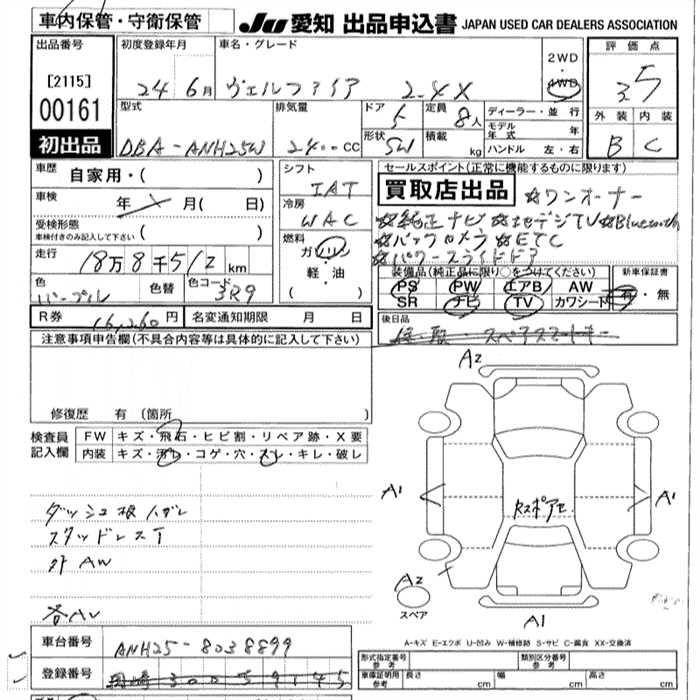 車内保管・守衛保管
JU 愛知 出品申込書 JAPAN USED CAR DEALERS ASSOCIATION
出品番号
[2115]
00161
初出品
初度登録年月
24年 6月
車名・グレード
ヴェルファイア 2.4X
2WD
・
4WD
評価点
3.5
外装 内装
B C
型式
DBA-ANH25W
排気量
2400cc
ドア
5
形状
SW
定員
8人
積載
kg
ディーラー・並行
モデル年式 年
ハンドル 左・右
車歴
自家用・( )
車検
年 月( 日)
受検形態
車検付きのみ記入して下さい ( )
走行
18万8千512km
色
パープル
色替
色コード
3R9
シフト
IAT
冷房
WAC
燃料
ガソリン
軽・油
( )
セールスポイント(正常に機能するものに限ります)
買取店出品 ☆ワンオーナー
☆純正ナビ ☆地デジTV ☆Bluetooth
☆バックカメラ ☆ETC
☆パワースライドドア
装備品(純正品に限り○をつけてください)
PS PW エアB AW
SR ナビ TV カワシート
新車保証書
有・無
R券 16,260円
名変通知期限 月 日
後日品
スペアスマートキー
注意事項申告欄(不具合内容等は具体的に記入して下さい)
修復歴 有 (箇所 )
検査員
記入欄
FW キズ・飛石・ヒビ割・リペア跡・X要
内装 キズ・汚レ・コゲ・穴・スレ・キレ・破レ
ダッシュ板ハガレ
スタッドレスT
外AW
各AU
A2
A1
A1
Rスポアセ
A2
スペア
A1
A-キズ E-エクボ U-凹み W-補修跡 S-サビ C-腐食 XX-交換済
車台番号 ANH25-8038899
登録番号 岡崎 300 5 9145
形式指定番号
参考
類別区分番号
参考
車庫証明用
参考
長さ cm 幅 cm 高さ cm